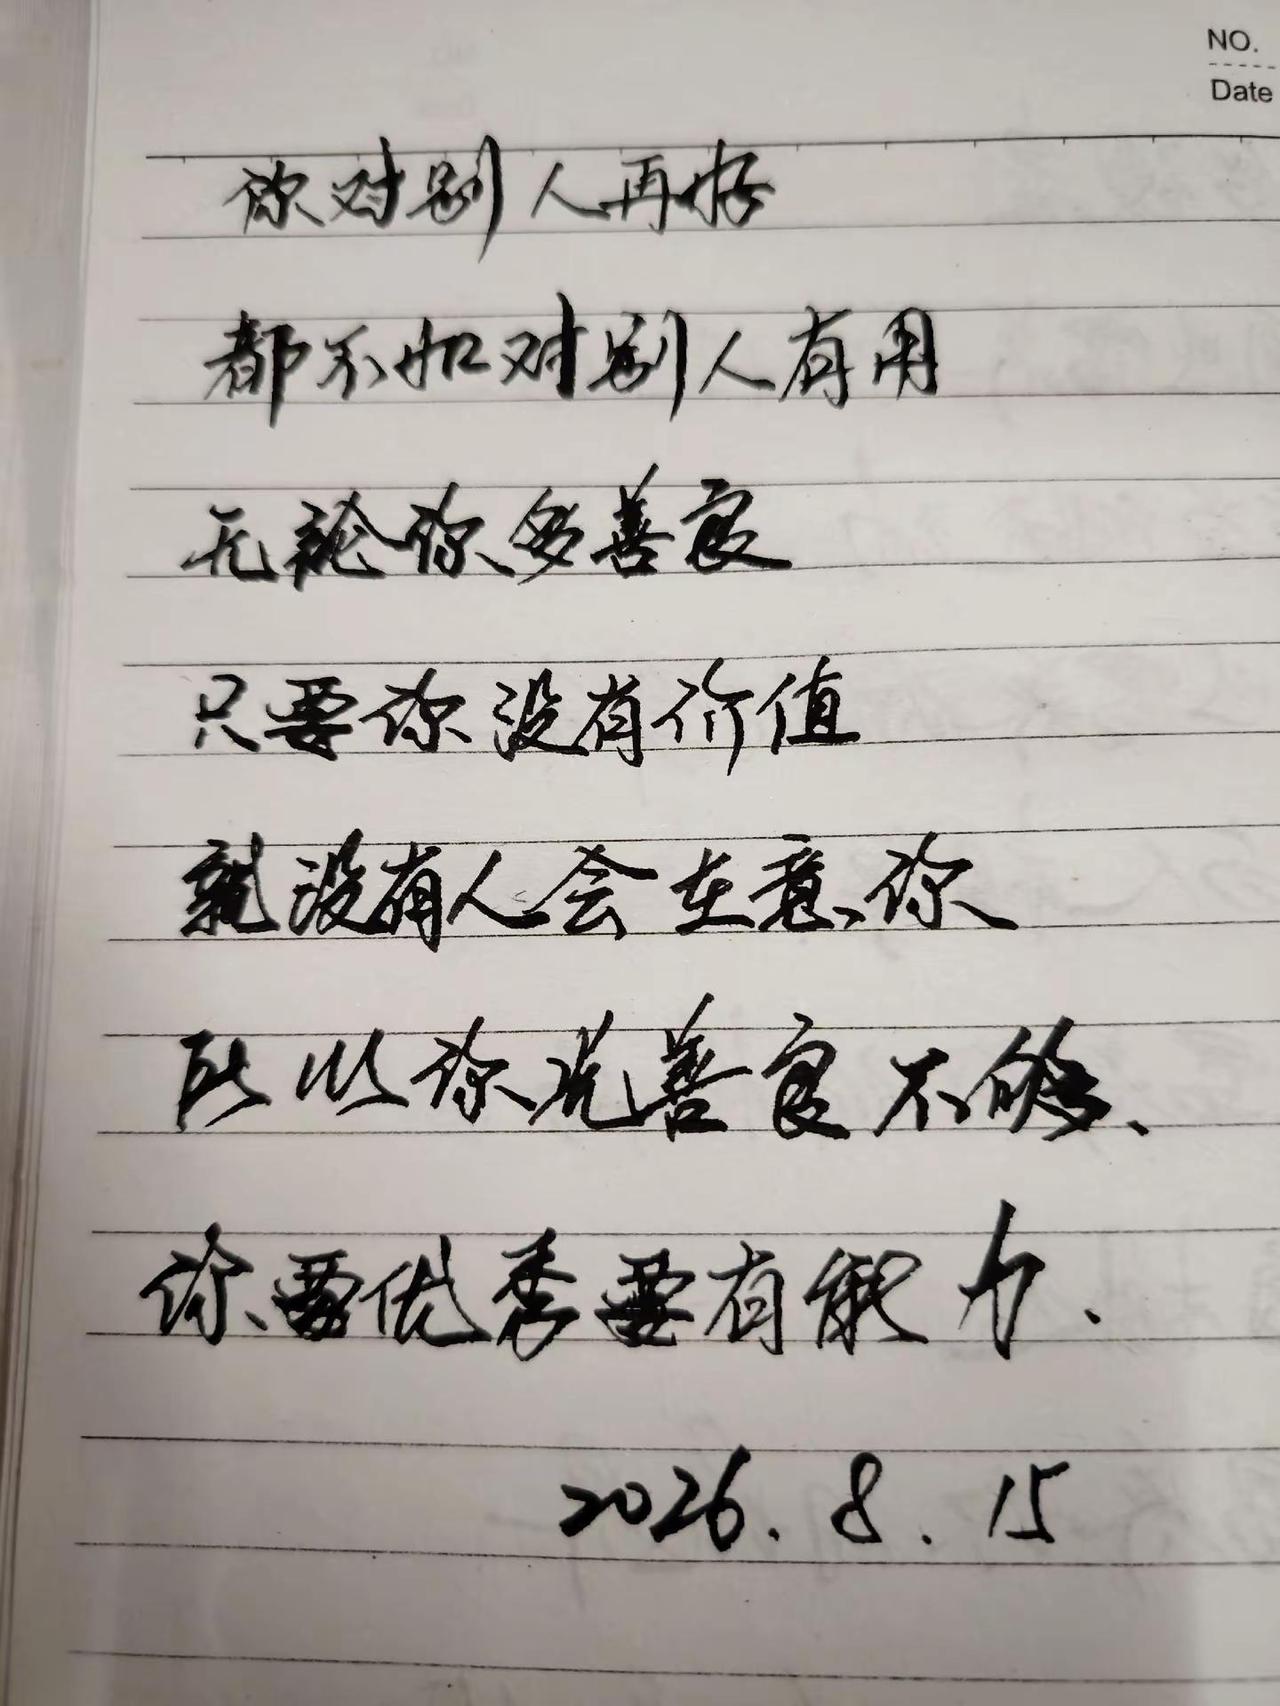 NO.
Date
你对别人再好
都不如对别人有用
无论你多善良
只要你没有价值
就没有人会在意你
所以你光善良不够、
你要优秀要有能力、
2026.8.15